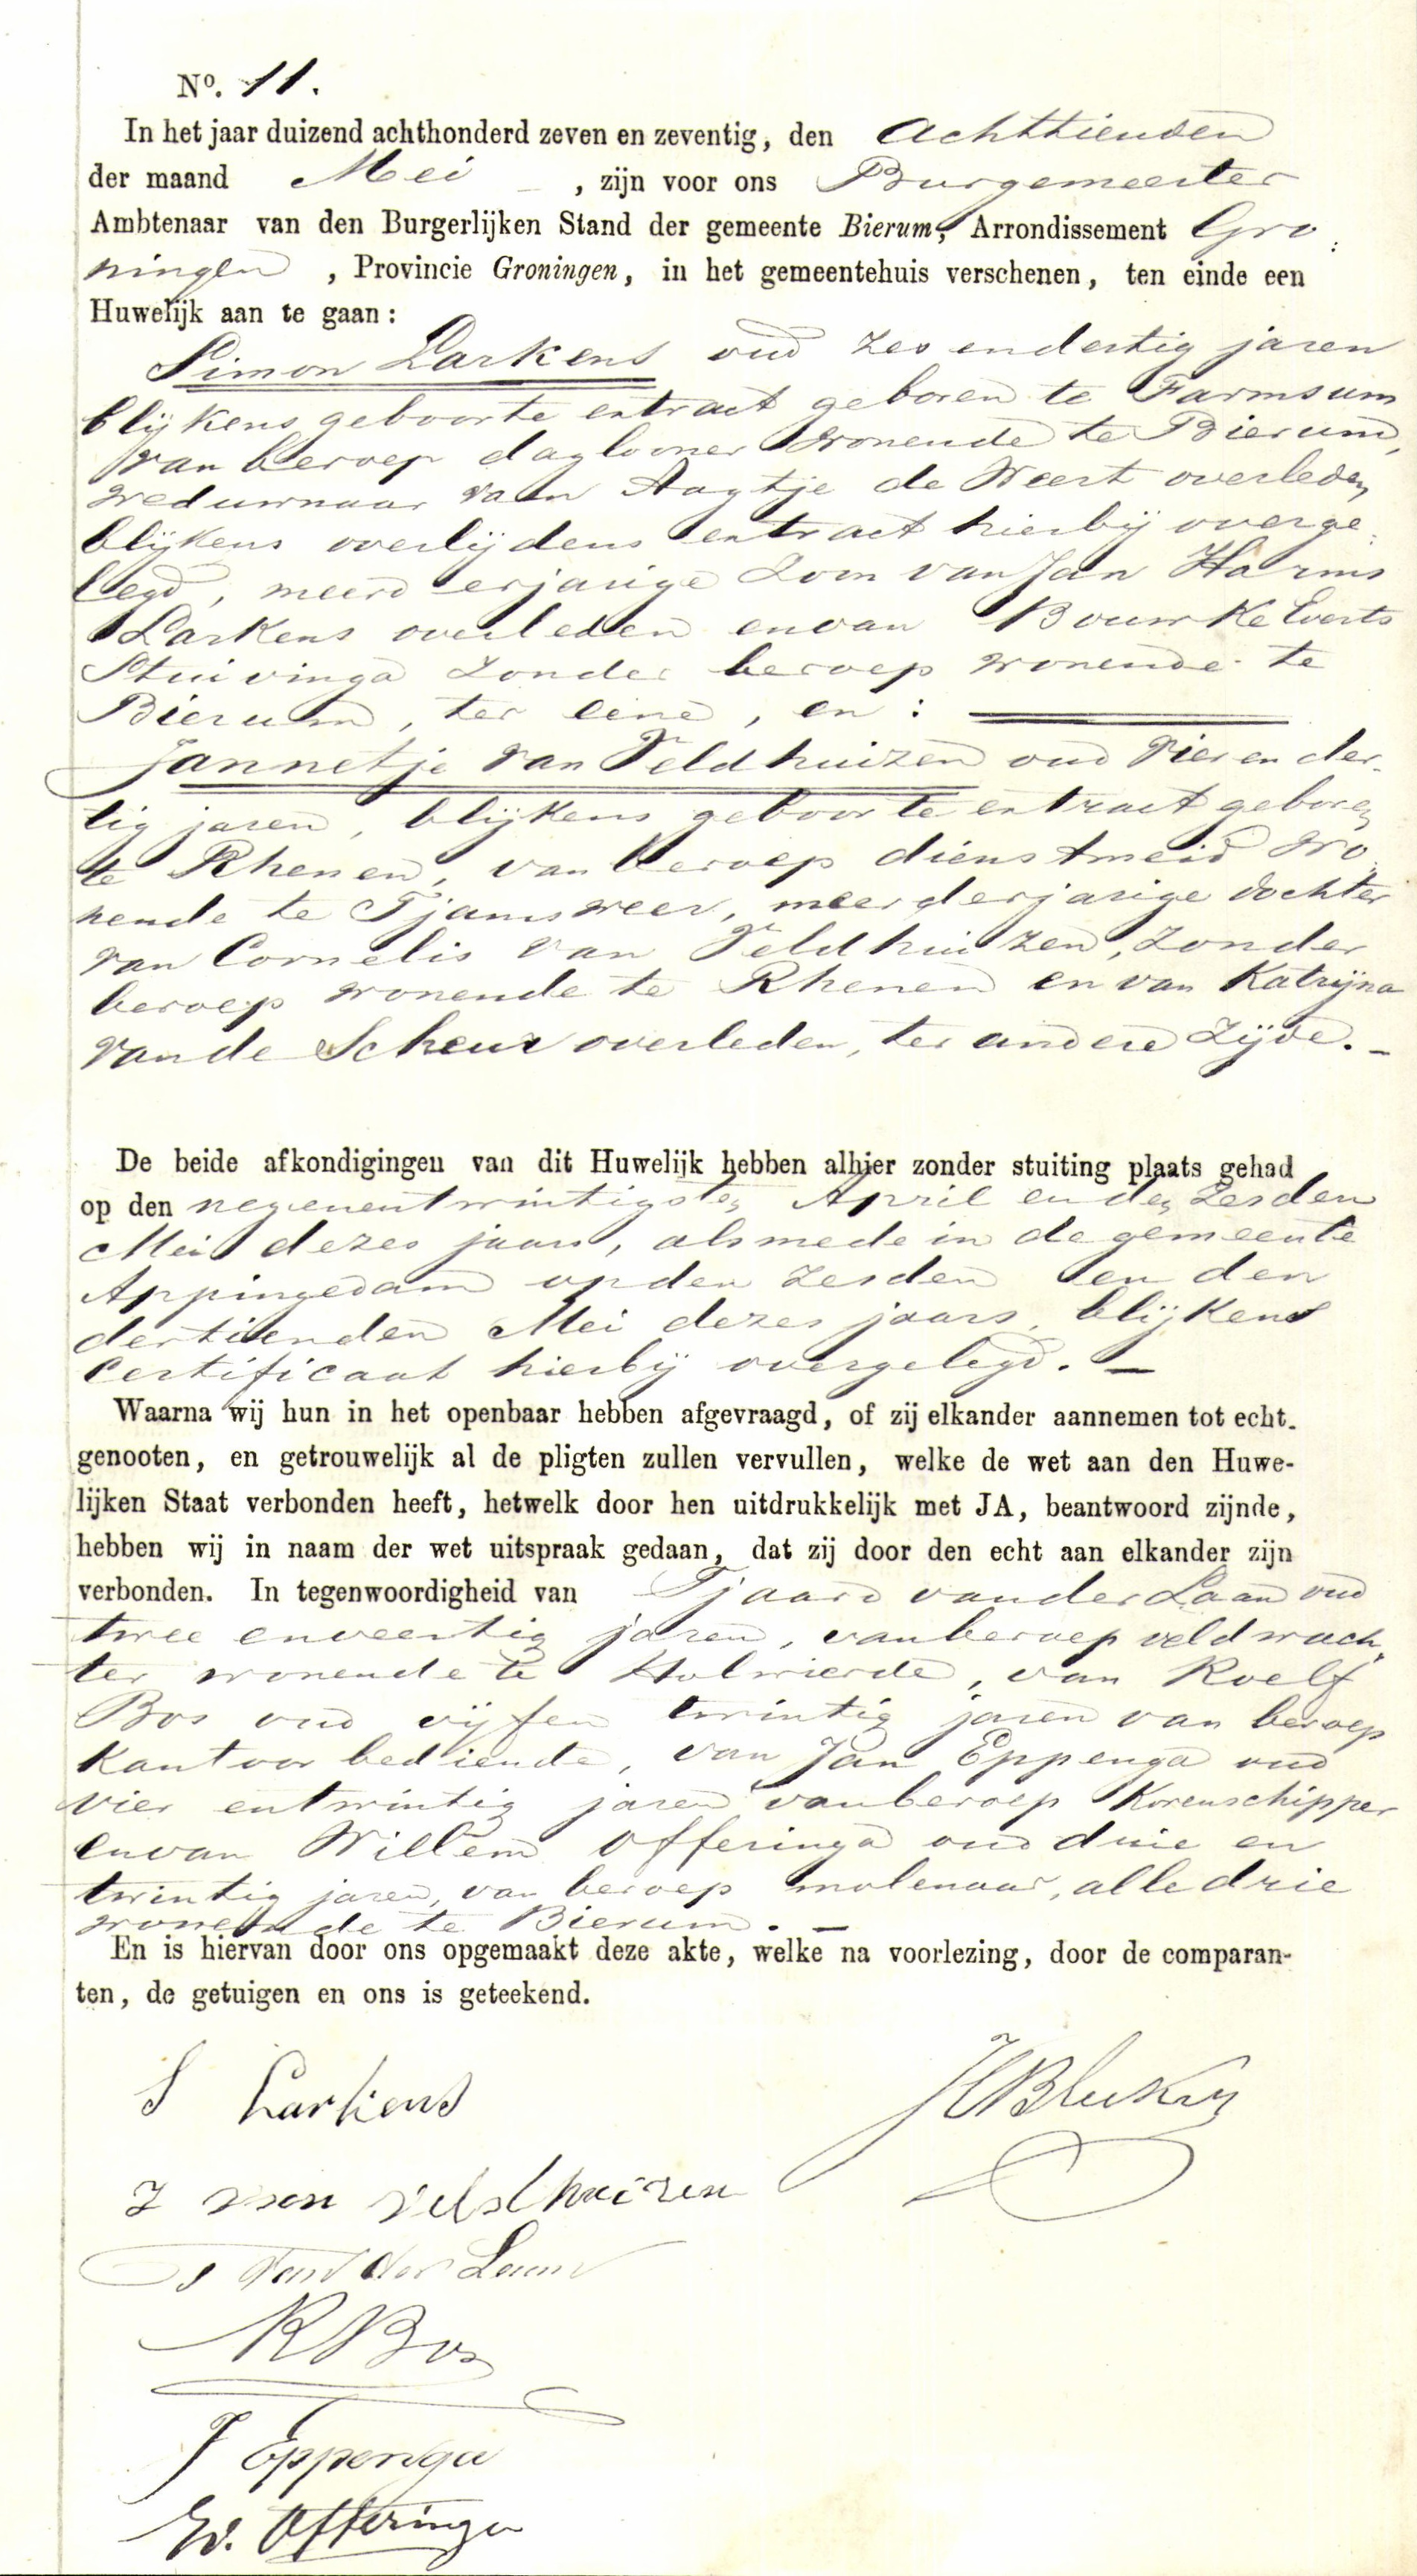 No. 11.
In het jaar duizend achthonderd zeven en zeventig, den Achttienden
der maand Mei , zijn voor ons Burgemeester
Ambtenaar van den Burgerlijken Stand der gemeente Bierum, Arrondissement Gro
ningen , Provincie Groningen, in het gemeentehuis verschenen, ten einde een
Huwelijk aan te gaan:
Simon Larkens oud zes en dertig jaren
blijkens geboorte extract geboren te Farmsum
van beroep daglooner wonende te Bierum,
weduwnaar van Aagtje de Weert overleden
blijkens overlijdens extract hierbij overge
legd, meerderjarige zoon van Jan Harms
Larkens overleden en van Bouwke Everts
Stuivinga zonder beroep wonende te
Bierum, ter eene, en:
Jannetje van Veldhuizen oud vier en der-
tig jaren, blijkens geboorte extract geboren
te Rhenen, van beroep dienstmeid wo
nende te Tjamsweer, meerderjarige dochter
van Cornelis van Veldhuizen, zonder
beroep wonende te Rhenen en van Katrijna
van de Scheur overleden, ter andere zijde. -
De beide afkondigingen van dit Huwelijk hebben alhier zonder stuiting plaats gehad
op den negenentwintigsten April en den zesden
Mei dezes jaars, alsmede in de gemeente
Appingedam op den zesden en den
dertienden Mei dezes jaars, blijkens
certificaat hierbij overgelegd. -
Waarna wij hun in het openbaar hebben afgevraagd, of zij elkander aannemen tot echt-
genooten, en getrouwelijk al de pligten zullen vervullen, welke de wet aan den Huwe-
lijken Staat verbonden heeft, hetwelk door hen uitdrukkelijk met JA, beantwoord zijnde,
hebben wij in naam der wet uitspraak gedaan, dat zij door den echt aan elkander zijn
verbonden. In tegenwoordigheid van Tjaard van der Laan oud
twee en veertig jaren, van beroep veldwach
ter wonende te Holwierde, van Roelf
Bos oud vijf en twintig jaren van beroep
kantoorbediende, van Jan Eppenga oud
vier en twintig jaren van beroep Korenschipper
en van Willem Offeringa oud drie en
twintig jaren, van beroep molenaar, alle drie
wonende te Bierum. -
En is hiervan door ons opgemaakt deze akte, welke na voorlezing, door de comparan-
ten, de getuigen en ons is geteekend.
S Larkens
J van Veldhuizen
van der Laan
R Bos
J Eppenga
W. Offeringa